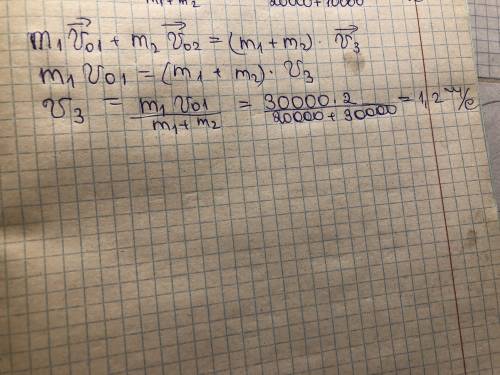 m₁+m₂ 20000+10000
m₁v⃗₀₁ + m₂ v⃗₀₂ = (m₁+m₂) · v⃗₃
m₁ v₀₁ = (m₁ + m₂) · v₃
v₃ = m₁ v₀₁ / m₁ + m₂ = 30000 · 2 / 20000 + 30000 = 1,2 м/с